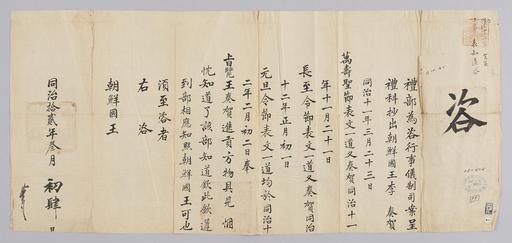 咨
禮部為咨行事儀制司案呈
禮科抄出朝鮮國王李 奏賀
同治十一年三月二十三日
萬壽聖節表文一道又奏賀同治十一
年十一月二十一日
長至令節表文一道又奏賀同治
十二年正月初一日
元旦令節表文一道均於同治十
二年二月初二日奉
旨覽王奏賀進貢方物具見 悃
忱知道了該部知道欽此欽遵
到部相應知照朝鮮國王可也
須至咨者
右 咨
朝鮮國王
同治拾貳年叁月 初肆 日